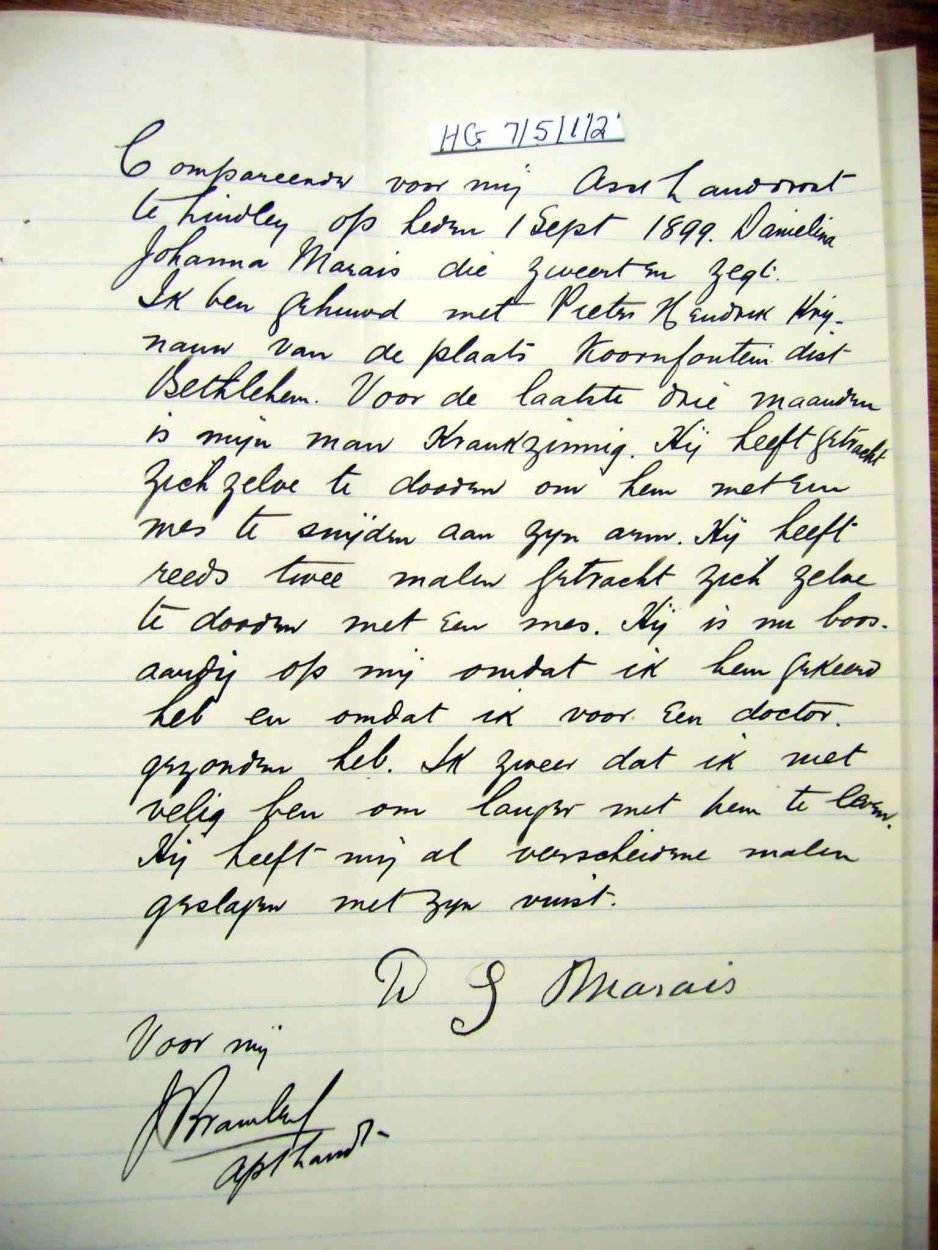 HG 7/5/1/2
Compareerde voor mij Asst Landdrost
te Lindley op heden 1 Sept 1899. Danielina
Johanna Marais die zweert en zegt:
Ik ben gehuwd met Pieter Hendrik Krij-
nauw van de plaats Koornfontein dist
Bethlehem. Voor de laatste drie maanden
is mijn man Krankzinnig. Hij heeft getracht
zich zelve te dooden om hem met een
mes te snijden aan zijn arm. Hij heeft
reeds twee malen getracht zich zelve
te dooden met een mes. Hij is nu boos-
aardig op mij omdat ik hem gekeerd
heb en omdat ik voor een doctor.
gezonden heb. Ik zweer dat ik niet
velig ben om langer met hem te leven.
Hij heeft mij al verscheidene malen
geslagen met zijn vuist.
D J Marais
Voor mij